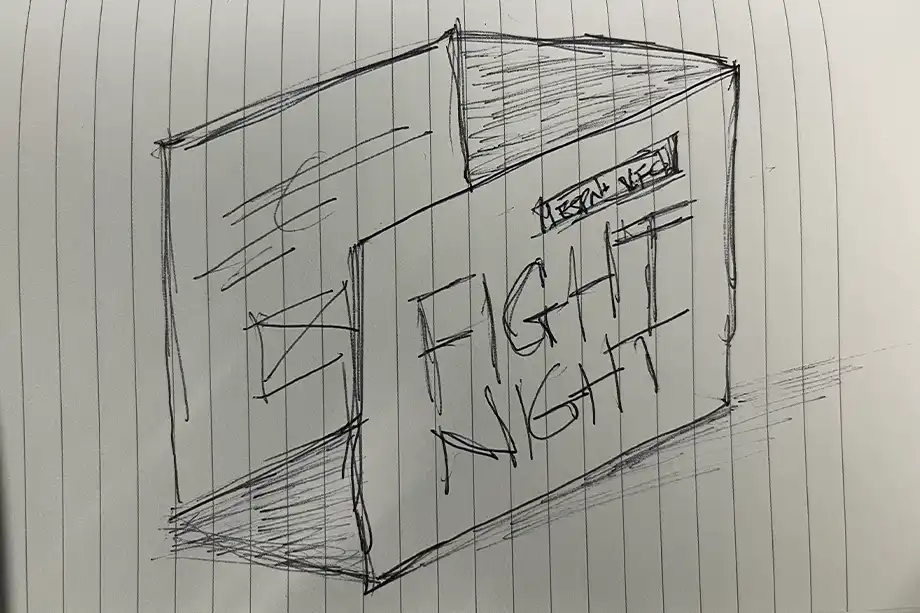 ESPN+ UFC
FIGHT
NIGHT